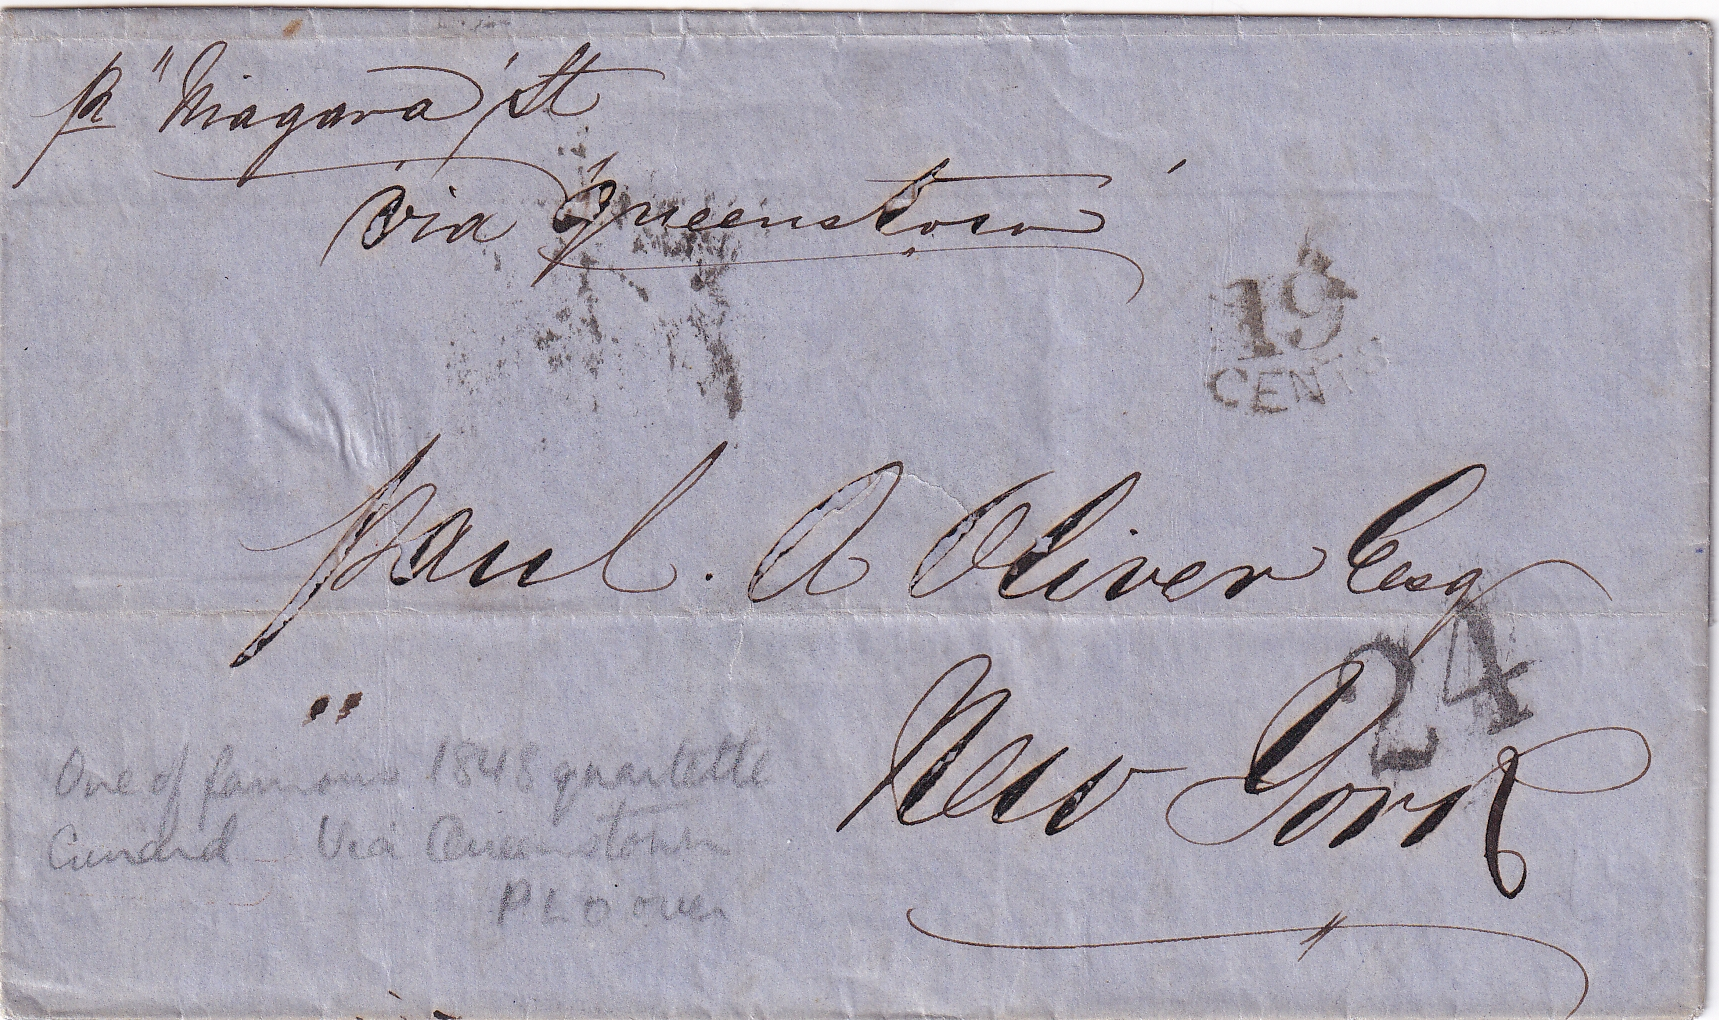 pr "Niagara" St
via "Queenstown"
19
CENTS
Paul. A Oliver Esq
24
New York
"
One of famous 1848 quartette
Cunard Via Queenstown
P L O over